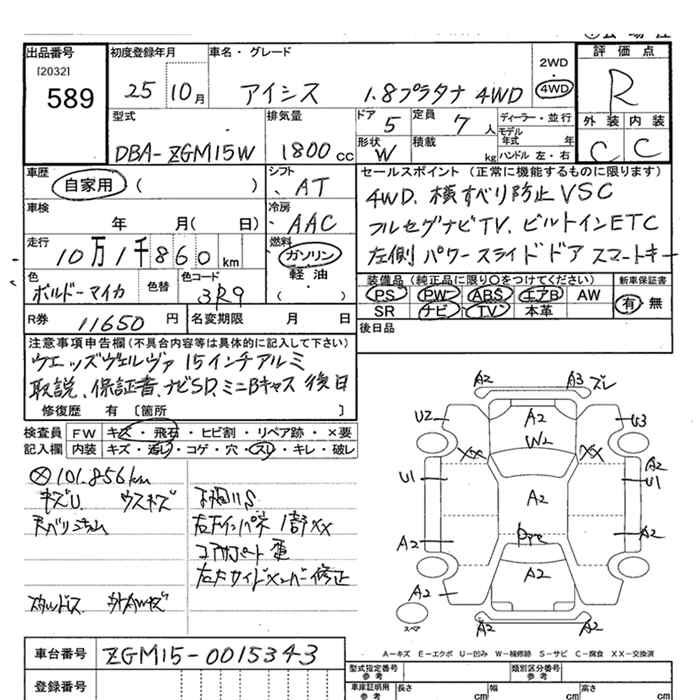 出品番号
[2032]
589
初度登録年月
25 10月
車名・グレード
アイシス 1.8プラタナ 4WD
2WD
4WD
評価点
R
外装 内装
C C
型式
DBA-ZGM15W
排気量
1800 cc
ドア
5
定員
7 人
形状
W
積載
kg
ディーラー・並行
モデル年式 年
ハンドル 左・右
車歴
自家用 ( )
シフト
AT
車検
年 月( 日)
冷房
AAC
走行
10万1千860 km
燃料
ガソリン
軽油
( )
色
ボルドーマイカ
色替
色コード
3R9
R券
11650 円
名変期限 月 日
セールスポイント (正常に機能するものに限ります)
4WD、横すべり防止VSC
フルセグナビTV、ビルトインETC
左側パワースライドドア スマートキー
装備品 (純正品に限り○をつけてください)
PS PW ABS エアB AW
SR ナビ TV 本革
新車保証書
有 無
後日品
注意事項申告欄 (不具合内容等は具体的に記入して下さい)
ウエッズヴェルヴァ 15インチアルミ
取説、保証書、ナビSD、ミニBキャス 後日
修復歴 有 [箇所 ]
検査員記入欄
FW キズ・飛石・ヒビ割・リペア跡・×要
内装 キズ・汚れ・コゲ・穴・スレ・キレ・破レ
101.856km
キズU ウスキズ
左右インパネ 1部XX
コアサポート
修正
A2 A3 ズレ
U2 A2 U3
W2
XX XX
U1 A2 A2 U1
A2 A2
A2 A2
A2 A2
スペア
A-キズ E-エクボ U-凹み W-補修跡 S-サビ C-腐食 XX-交換済
車台番号
ZGM15-0015343
登録番号
型式指定番号 参考
類別区分番号 参考
車庫証明用 参考
長さ cm
幅 cm
高さ cm